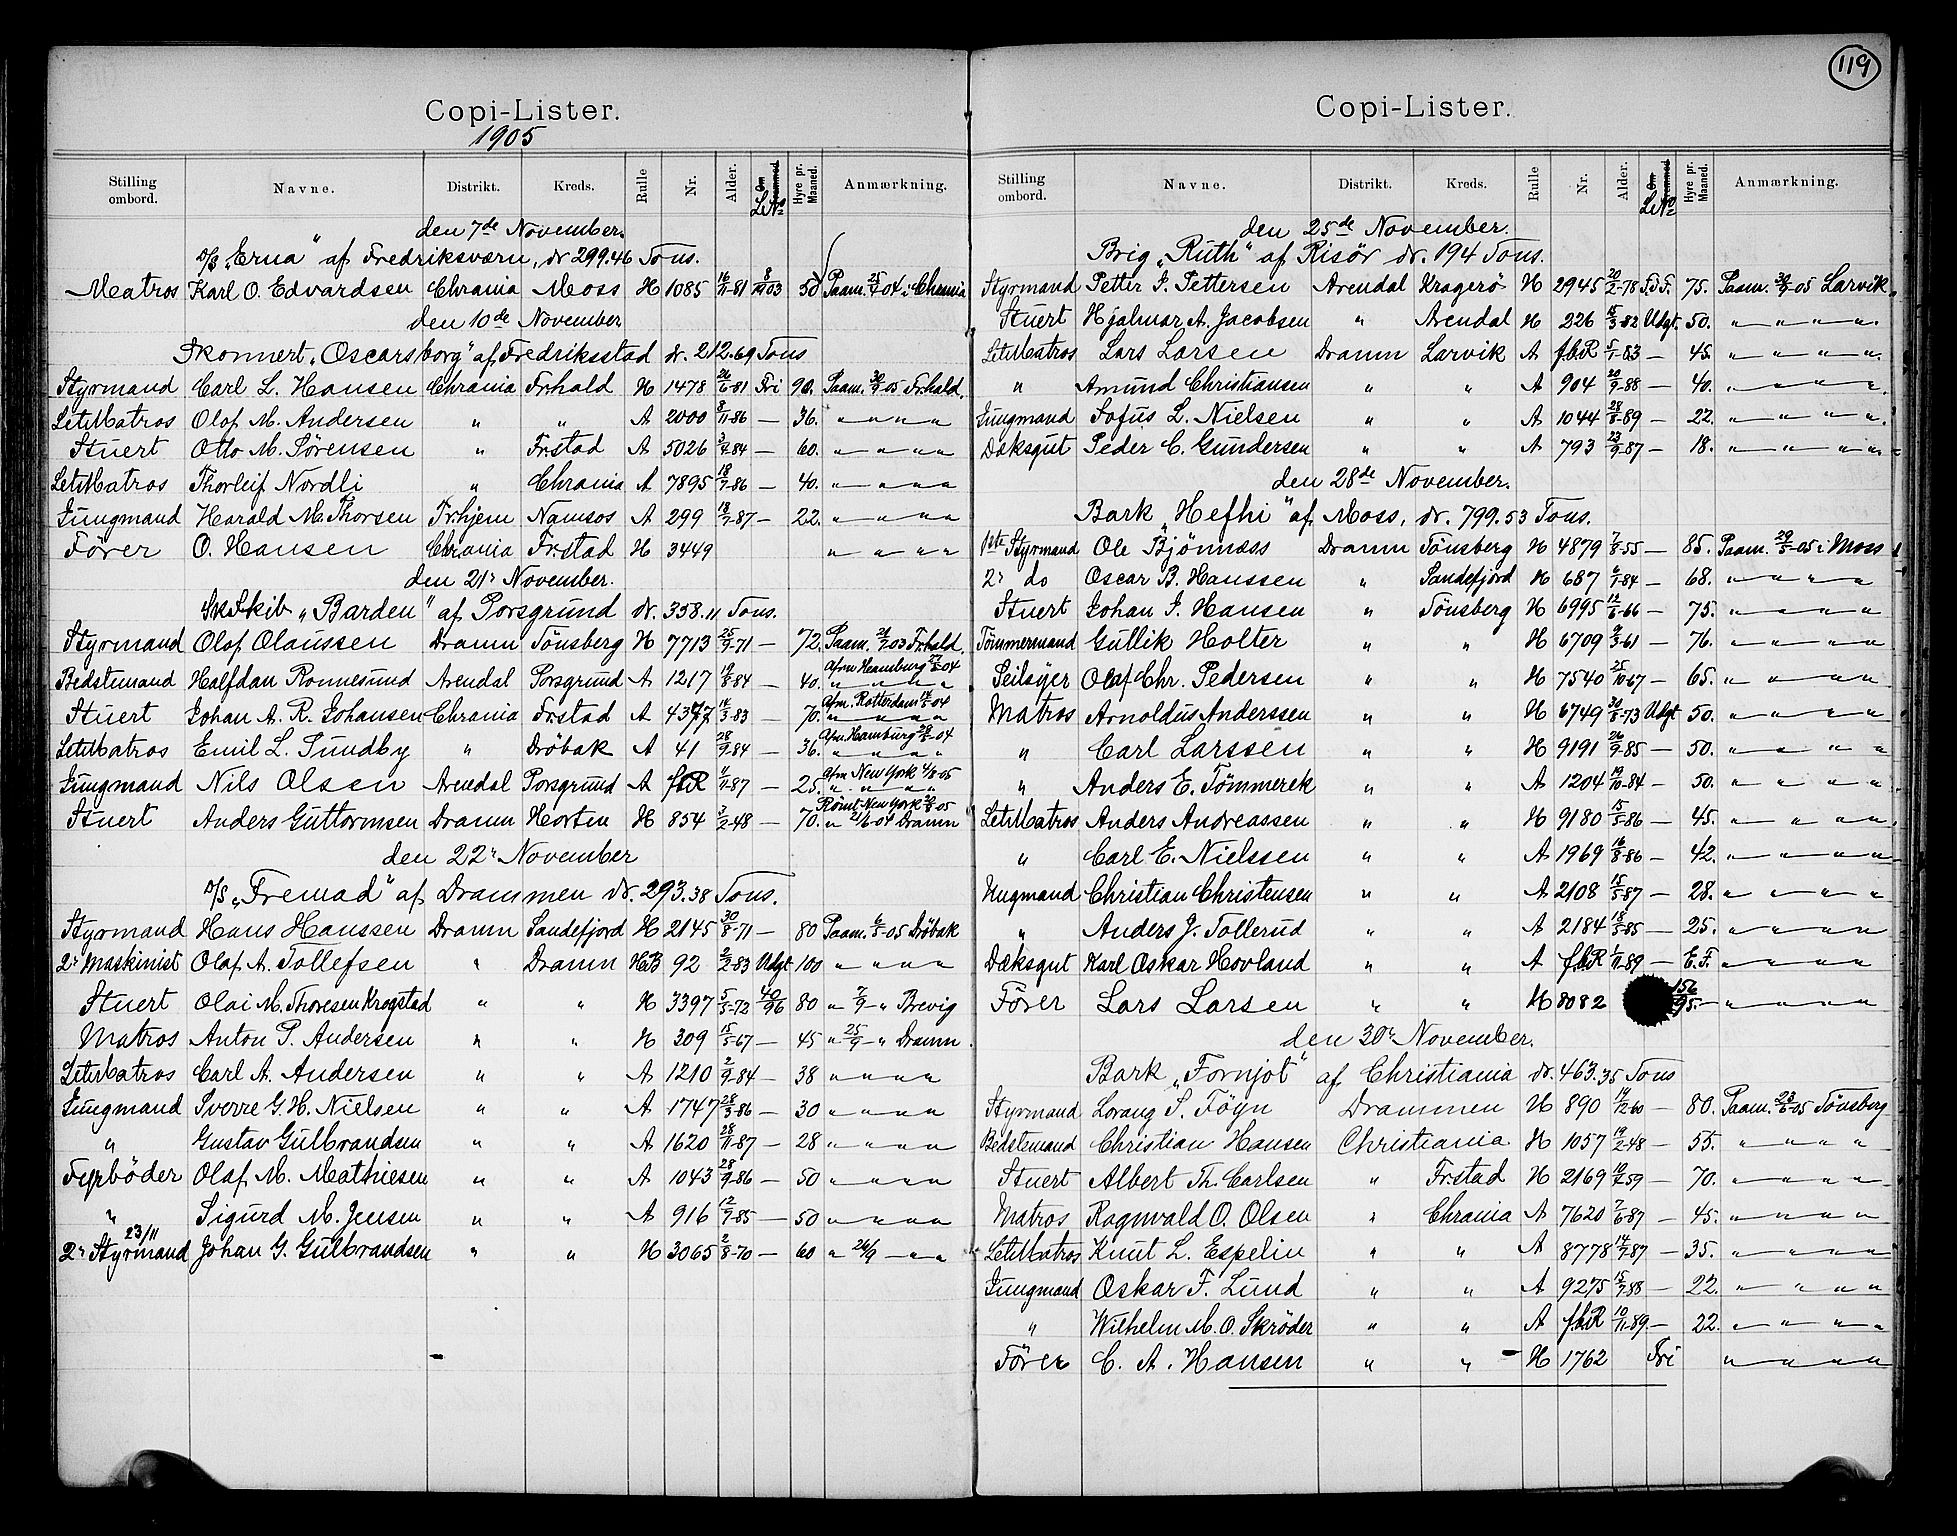 119
Copi-Lister.
1905
Stilling ombord. Navne. Distrikt. Kreds. Rulle Nr. Alder. Hyre pr. Maaned. Anmærkning.
den 7de November.
D/S „Erna" af Fredriksværn, dr 299.46 Tons.
Matros Karl O. Edvardsen Chrania Moss H 1085 16/11-81 50 Paam. 25/7 04 i Chrania
den 10de November
Skonnert „Oscarsborg" af Fredriksstad dr. 212.69 Tons
Styrmand Carl L. Hansen Chrania Frhald H 1478 26/6-81 Fri 90. Paam. 30/9-05 Frhald.
LetMatros Olaf M. Andersen " " A 2000 8/11-86 — 36. " " " "
Stuert Otto M. Sörensen " Frstad A 5026 3/4-84 — 60. " " " "
LetMatros Thorleif Nordli " Chrania A 7895 18/7-86 — 40. " " " "
Jungmand Harald M. Thorsen Trhjem Namsos A 299 18/7-87 — 22. " " " "
Förer O. Hansen Chrania Frstad H 3449 " " " "
den 21' November.
Skskib „Barden" af Porsgrund dr. 358.11 Tons.
Styrmand Olaf Olaussen Dramn Tönsberg H 7713 25/9-71 — 72. Paam. 21/7-03 Frhald.
Bedstemand Halfdan Ronnesund Arendal Porsgrund A 1217 19/8-84 — 40. Afm Hamburg 27/5-04 " " " "
Stuert Johan A. R. Johansen Chrania Frstad A 4377 14/3-83 — 70. Afm. Rotterdam 14/5-04 " " " "
LetMatros Emil L. Sundby " Dröbak A 41 28/9-84 — 36. Afm. Hamburg 28/5-04 " " " "
Jungmand Nils Olsen Arendal Porsgrund A fbR 4/11-87 — 25. Afm New York 4/8-05 " " " "
Stuert Anders Guttormsen Dramn Horten H 854 3/2-48 — 70. Römt New York 28/8-05 " 21/6-04 Dramn
den 22' November
D/S „Fremad" af Drammen dr. 293.38 Tons.
Styrmand Hans Hanssen Dramn Sandefjord H 2145 30/8-71 — 80 Paam. 6/5-05 Dröbak
2' Maskinist Olaf A. Tollefsen " Dramn HB 92 2/2-83 Udgt 100 " " " "
Stuert Olai M. Thoresen Krogstad " " H 3397 5/5-72 40/96 80 " 7/9 — " Brevig
Matros Anton P. Andersen " " H 309 15/5-67 — 45 " 25/9 — " Dramn.
LetMatros Carl A. Andersen " " A 1210 2/9-84 — 38 " " " "
Jungmand Sverre G. H. Nielsen " " A 1747 28/3-86 — 30 " " " "
" Gustav Gulbrandsen " " A 1620 28/11-87 — 28 " " " "
Fyrböder Olaf M. Mathiesen " " A 1043 28/9-86 — 50 " " " "
" Sigurd M. Jensen " " A 916 12/9-85 — 50 " " " "
23/11
2' Styrmand Johan G. Gulbrandsen " " H 3065 2/8-70 — 60 " 26/9 — " "
Copi-Lister.
Stilling ombord. Navne. Distrikt. Kreds. Rulle Nr. Alder. Hyre pr. Maaned. Anmærkning.
den 25de November.
Brig „Ruth" af Risör dr. 194 Tons.
Styrmand Petter J. Pettersen Arendal Kragerö H 2945 20/2-78 75. Paam. 30/9-05 Larvik.
Stuert Hjalmar A. Jacobsen " Arendal H 226 15/3-82 Udgt. 50. " " " "
LetMatros Lars Larsen Dramn Larvik A fbR 5/1-83 — 45. " " " "
" Amund Christiansen " " A 904 20/9-88 — 40. " " " "
Jungmand Sofus L. Nielsen " " A 1044 28/8-89 — 22. " " " "
Dæksgut Peder C. Gundersen " " A 793 23/9-87 — 18. " " " "
den 28de November.
Bark „Hefhi" af Moss, dr. 799.53 Tons.
1ste Styrmand Ole Bjönnæss Dramn Tönsberg H 4879 7/8-55 — 85. Paam. 29/5-05 i Moss
2' do Oscar B. Hanssen " Sandefjord H 687 6/7-84 — 68. " " " "
Stuert Johan J. Hansen " Tönsberg H 6995 12/6-66 — 75. " " " "
Tömmermand Gullik Holter " " H 6709 9/3-61 — 76. " " " "
Seilsyer Olaf Chr. Pedersen " " H 7540 25/10-67 — 65. " " " "
Matros Arnoldus Anderssen " " H 6749 30/8-73 Udgt 50. " " " "
" Carl Larssen " " H 9191 26/9-85 — 50. " " " "
" Anders E. Tömmerek " " A 1204 19/10-84 — 50. " " " "
LetMatros Anders Andreassen " " H 9180 15/5-86 — 45. " " " "
" Carl E. Nielssen " " A 1969 16/8-86 — 42. " " " "
Ungmand Christian Christensen " " A 2108 15/5-87 — 28. " " " "
" Anders J. Tollerud " " A 2184 18/5-85 — 25. " " " "
Dæksgut Karl Oskar Hovland " " A fbR 1/11-89 — E.F. " " " "
Förer Lars Larsen " " H 8082 156/95. — " " " "
den 30' November.
Bark „Fornjot" af Christiania dr. 463.35 Tons
Styrmand Lorang S. Föyn Drammen H 890 17/12-60 — 80. Paam. 23/6-05 Tönsberg
Bedstemand Christian Hansen Christiania H 1057 19/2-48 — 55. " " " "
Stuert Albert Th. Carlsen " Frstad H 2169 10/7-59 — 70. " " " "
Matros Ragnvald O. Olsen " Chrania A 7620 7/6-87 — 45. " " " "
LetMatros Knut L. Espelin " " A 8778 14/7-87 — 35. " " " "
Jungmand Oskar F. Lund " " A 9275 15/7-88 — 22. " " " "
" Wilhelm M. O. Skröder " " A fbR 10/11-89. — 22. " " " "
Förer C. A. Hansen " " H 1762 Fri " " " "